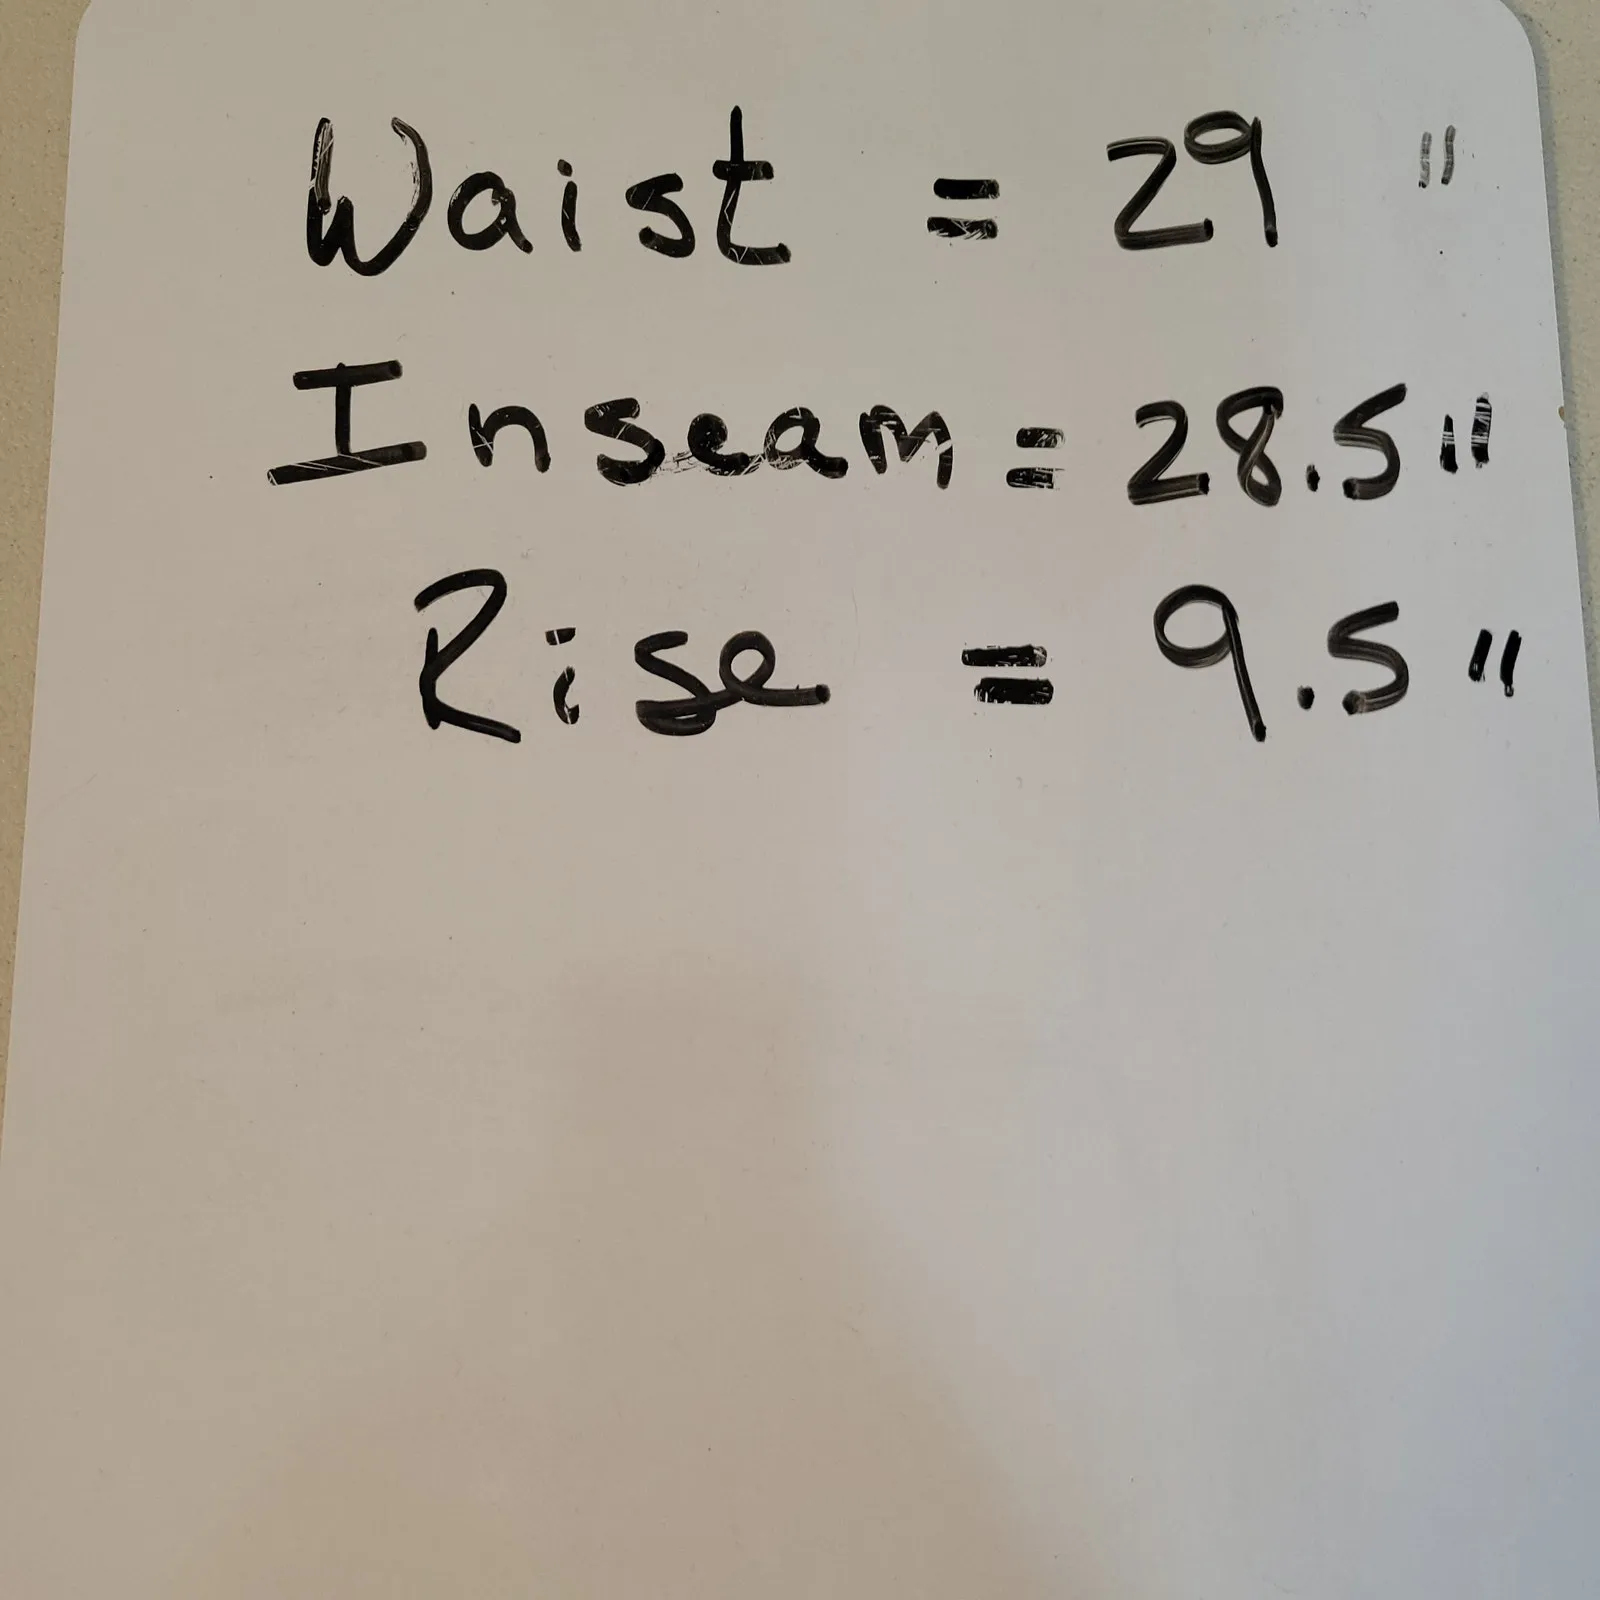 Waist = 29 "
Inseam = 28.5 "
Rise = 9.5 "